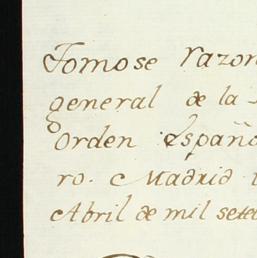 Tomose razon
general de la
Orden Españo
ro. Madrid
Abril de mil sete